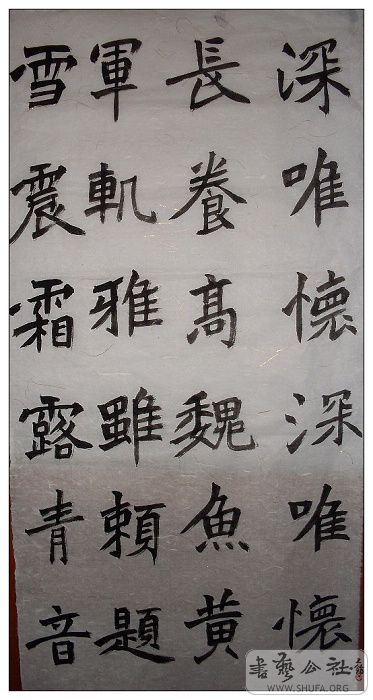 深唯懷深唯懷
長養高魏魚黄
軍軌雅雖賴題
雪震霜露青音
書藝公社
WWW.SHUFA.ORG